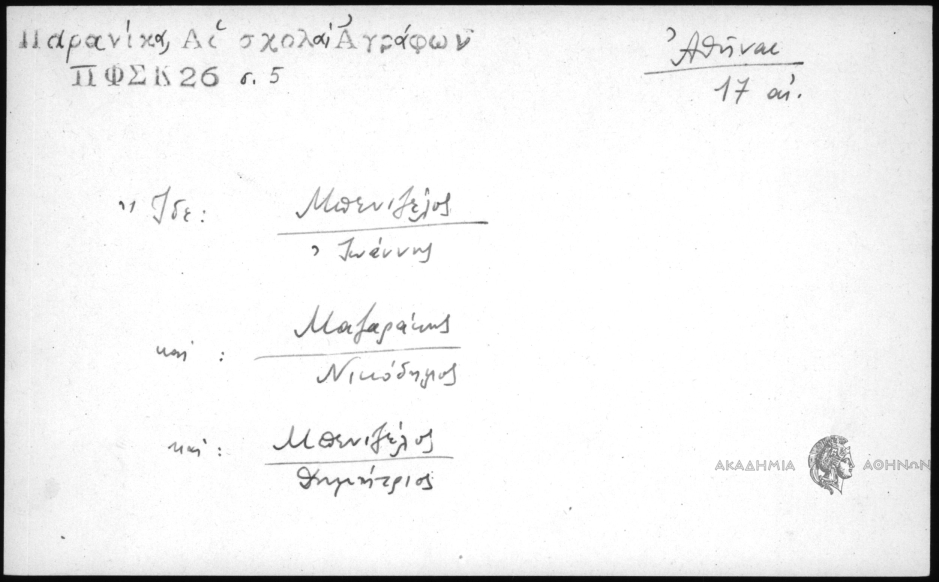 Παρανίκα, Αἱ σχολαί Ἀγράφων
ΠΦΣΚ26 σ. 5
Ἀθῆναι
17 αἰ.
Ἴδε: Μπενιζέλος
Ἰωάννης
καί: Μαζαράκης
Νικόδημος
καί: Μπενιζέλος
Δημήτριος
ΑΚΑΔΗΜΙΑ ΑΘΗΝΩΝ